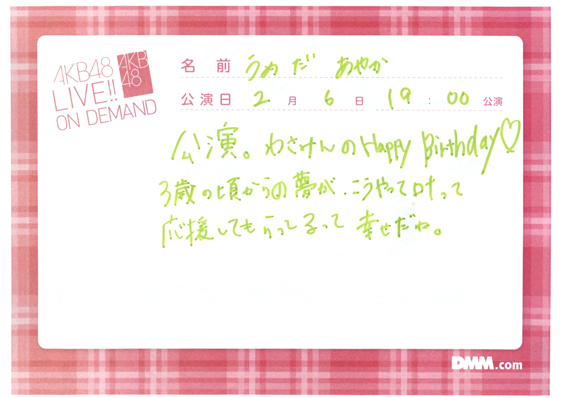 AKB48
LIVE!!
ON DEMAND
AKB
48
名前 うめだ あやか
公演日 2月 6日 19:00 公演
公演。わさみんのHappy Birthday♡
3歳の頃からの夢が、こうやって叶って
応援してもらってるって 幸せだね。
DMM.com